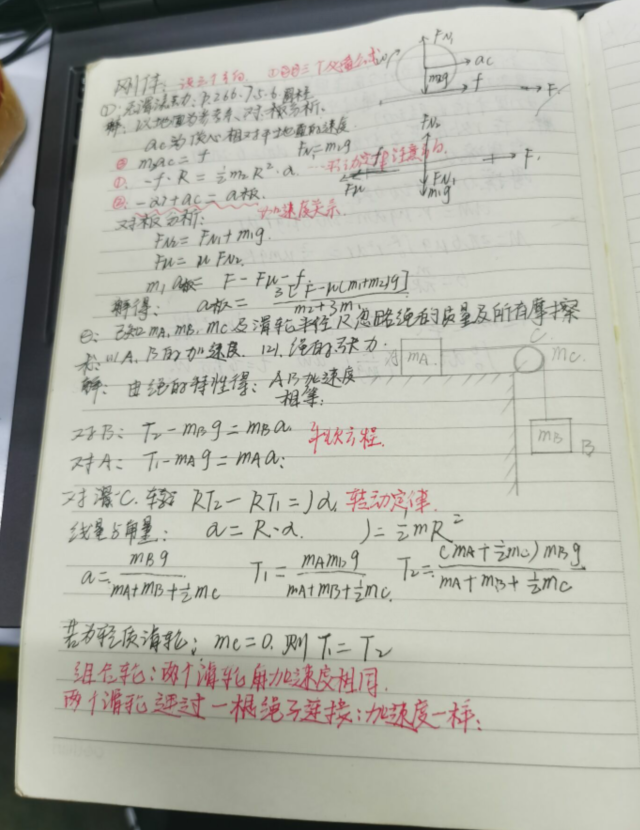 刚体:
①. 无滑滚动: P.266.7.5.6 圆柱
解: 以地面为参考系, 对 分析.
ac为质心相对于地面的速度
② m₂ac = f    FN₁=m₂g
①. -f·R = ½m₂R²·α
③ -αr + ac = a板    加速度关系.
对板分析:
FN₂ = FN₁ + m₁g.
Fμ = μ FN₂.
m₁ a板 = F - Fμ - f
解得: a板 = 3[F-μ(m₁+m₂)g] / m₂+3m₁
②: 已知mA, mB, mC及滑轮半径R忽略绳的质量及所有摩擦
求: (1) A, B的加速度. (2). 绳的张力.
解: 由绳的特性得: AB加速度
相等:
对B: T₂-mBg=mBa.    牛二方程.
对A: T₁-mAg=mAa:
对滑C. RT₂-RT₁=Jα, 转动定律.
线量与角量: a=R·α.    J=½mR²
a = mBg / mA+mB+½mC    T₁ = mAmBg / mA+mB+½mC.    T₂ = (mA+½mC)mBg / mA+mB+½mC
若为轻质滑轮: mC=0. 则 T₁=T₂
组合轮: 两个滑轮角加速度相同.
两个滑轮通过一根绳子连接: 加速度一样:
FN₁
ac
m₂g
f
F
FN₂
F
Fμ
FN₁
m₁g
A
mA
C
mC
mB
B